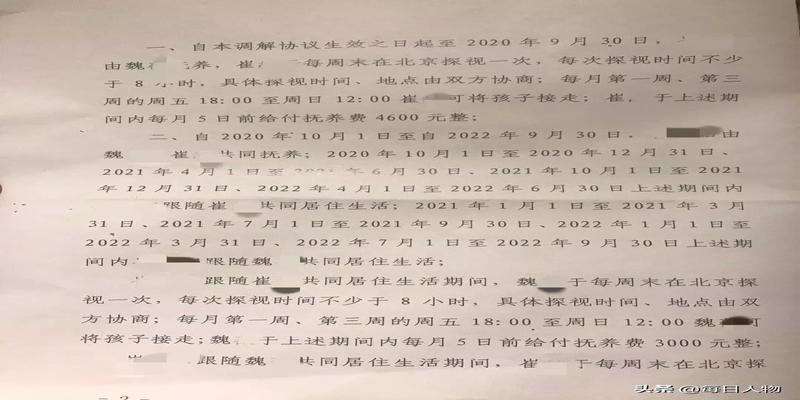 一、自本调解协议生效之日起至 2020 年 9 月 30 日,
由魏 养,崔 每周末在北京探视一次,每次探视时间不少
于 8 小时,具体探视时间、地点由双方协商;每月第一周、第三
周的周五 18:00 至周日 12:00 崔 可将孩子接走;崔 于上述期
间内每月 5 日前给付抚养费 4600 元整;
二、自 2020 年 10 月 1 日至自 2022 年 9 月 30 日, 由
魏 崔 共同抚养;2020 年 10 月 1 日至 2020 年 12 月 31 日、
2021 年 4 月 1 日至 年 6 月 30 日、2021 年 10 月 1 日至 2021
年 12 月 31 日、2022 年 4 月 1 日至 2022 年 6 月 30 日上述期间内
跟随崔 共同居住生活;2021 年 1 月 1 日至 2021 年 3 月
31 日、2021 年 7 月 1 日至 2021 年 9 月 30 日、2022 年 1 月 1 日至
2022 年 3 月 31 日、2022 年 7 月 1 日至 2022 年 9 月 30 日上述期
间内 跟随魏 共同居住生活;
跟随崔 共同居住生活期间,魏 于每周末在北京探
视一次,每次探视时间不少于 8 小时,具体探视时间、地点由双
方协商;每月第一周、第三周的周五 18:00 至周日 12:00 魏 可
将孩子接走;魏 于上述期间内每月 5 日前给付抚养费 3000 元整;
跟随魏 共同居住生活期间,崔 于每周末在北京探
- 2 -
头条 @每日人物